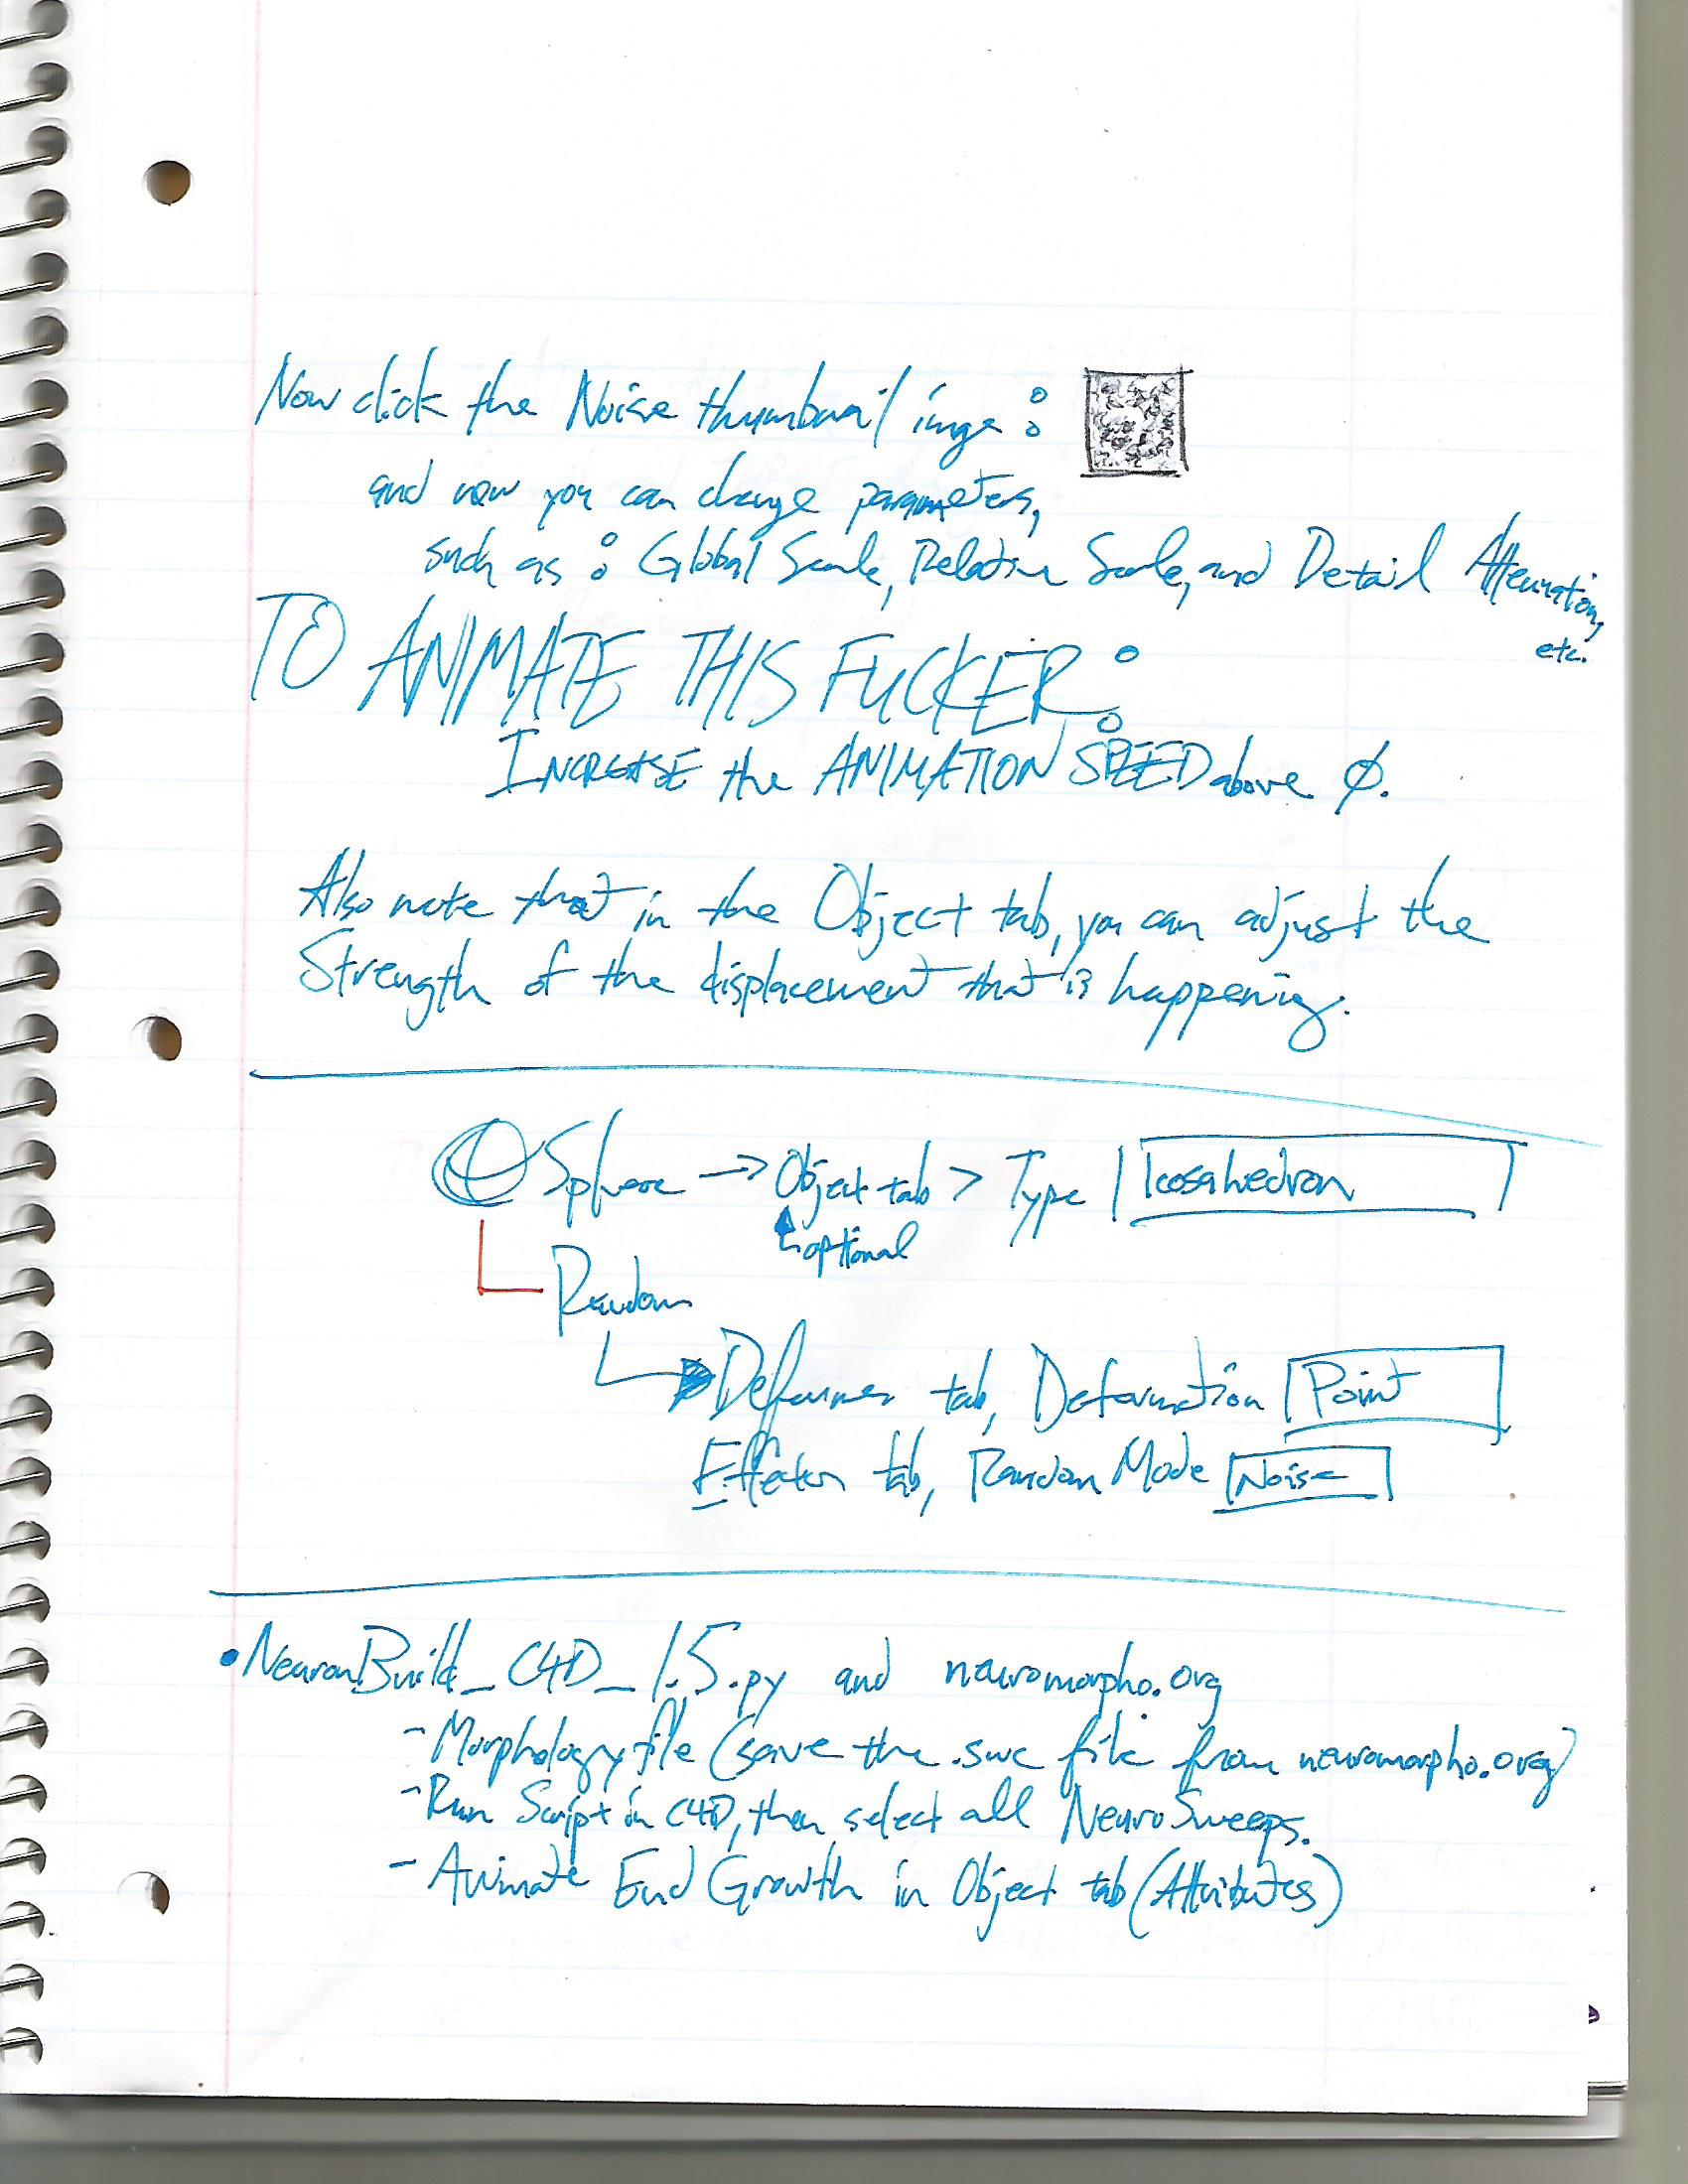 Now click the Noise thumbnail imge:
and now you can change parameters,
such as: Global Scale, Relative Scale, and Detail Attenuation,
etc.
TO ANIMATE THIS FUCKER:
INCREASE the ANIMATION SPEED above Ø.
Also note that in the Object tab, you can adjust the
Strength of the displacement that is happening.
Sphere → Object tab > Type Icosahedron
optional
Random
Deformer tab, Deformation Point
Effector tab, Random Mode Noise
• NeuronBuild_C4D_1.5.py and neuromorpho.org
- Morphology file (save the .swc file from neuromorpho.org)
- Run Script in C4D, then select all NeuroSweeps.
- Animate End Growth in Object tab (Attributes)